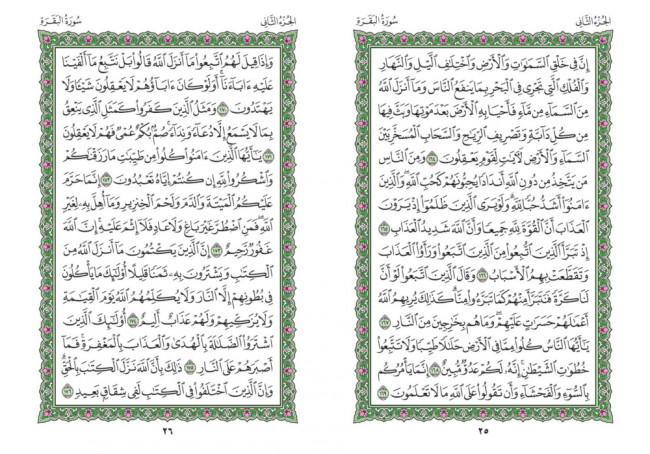 الجزء الثاني
سورة البقرة
إِنَّ فِي خَلْقِ السَّمَٰوَٰتِ وَالْأَرْضِ وَاخْتِلَٰفِ الَّيْلِ وَالنَّهَارِ
وَالْفُلْكِ الَّتِي تَجْرِي فِي الْبَحْرِ بِمَا يَنفَعُ النَّاسَ وَمَا أَنزَلَ اللَّهُ
مِنَ السَّمَاءِ مِن مَّاءٍ فَأَحْيَا بِهِ الْأَرْضَ بَعْدَ مَوْتِهَا وَبَثَّ فِيهَا
مِن كُلِّ دَابَّةٍ وَتَصْرِيفِ الرِّيَٰحِ وَالسَّحَابِ الْمُسَخَّرِ بَيْنَ
السَّمَاءِ وَالْأَرْضِ لَءَايَٰتٍ لِّقَوْمٍ يَعْقِلُونَ ١٦٤ وَمِنَ النَّاسِ
مَن يَتَّخِذُ مِن دُونِ اللَّهِ أَندَادًا يُحِبُّونَهُمْ كَحُبِّ اللَّهِ وَالَّذِينَ
ءَامَنُوا أَشَدُّ حُبًّا لِّلَّهِ وَلَوْ يَرَى الَّذِينَ ظَلَمُوا إِذْ يَرَوْنَ
الْعَذَابَ أَنَّ الْقُوَّةَ لِلَّهِ جَمِيعًا وَأَنَّ اللَّهَ شَدِيدُ الْعَذَابِ ١٦٥
إِذْ تَبَرَّأَ الَّذِينَ اتُّبِعُوا مِنَ الَّذِينَ اتَّبَعُوا وَرَأَوُا الْعَذَابَ
وَتَقَطَّعَتْ بِهِمُ الْأَسْبَابُ ١٦٦ وَقَالَ الَّذِينَ اتَّبَعُوا لَوْ أَنَّ
لَنَا كَرَّةً فَنَتَبَرَّأَ مِنْهُمْ كَمَا تَبَرَّءُوا مِنَّا كَذَٰلِكَ يُرِيهِمُ اللَّهُ
أَعْمَٰلَهُمْ حَسَرَٰتٍ عَلَيْهِمْ وَمَا هُم بِخَٰرِجِينَ مِنَ النَّارِ ١٦٧
يَٰأَيُّهَا النَّاسُ كُلُوا مِمَّا فِي الْأَرْضِ حَلَٰلًا طَيِّبًا وَلَا تَتَّبِعُوا
خُطُوَٰتِ الشَّيْطَٰنِ إِنَّهُ لَكُمْ عَدُوٌّ مُّبِينٌ ١٦٨ إِنَّمَا يَأْمُرُكُم
بِالسُّوءِ وَالْفَحْشَاءِ وَأَن تَقُولُوا عَلَى اللَّهِ مَا لَا تَعْلَمُونَ ١٦٩
٢٥
الجزء الثاني
سورة البقرة
وَإِذَا قِيلَ لَهُمُ اتَّبِعُوا مَا أَنزَلَ اللَّهُ قَالُوا بَلْ نَتَّبِعُ مَا أَلْفَيْنَا
عَلَيْهِ ءَابَاءَنَا أَوَلَوْ كَانَ ءَابَاؤُهُمْ لَا يَعْقِلُونَ شَيْئًا وَلَا
يَهْتَدُونَ ١٧٠ وَمَثَلُ الَّذِينَ كَفَرُوا كَمَثَلِ الَّذِي يَنْعِقُ
بِمَا لَا يَسْمَعُ إِلَّا دُعَاءً وَنِدَاءً صُمٌّ بُكْمٌ عُمْيٌ فَهُمْ لَا يَعْقِلُونَ
١٧١ يَٰأَيُّهَا الَّذِينَ ءَامَنُوا كُلُوا مِن طَيِّبَٰتِ مَا رَزَقْنَٰكُمْ
وَاشْكُرُوا لِلَّهِ إِن كُنتُمْ إِيَّاهُ تَعْبُدُونَ ١٧٢ إِنَّمَا حَرَّمَ
عَلَيْكُمُ الْمَيْتَةَ وَالدَّمَ وَلَحْمَ الْخِنزِيرِ وَمَا أُهِلَّ بِهِ لِغَيْرِ
اللَّهِ فَمَنِ اضْطُرَّ غَيْرَ بَاغٍ وَلَا عَادٍ فَلَا إِثْمَ عَلَيْهِ إِنَّ اللَّهَ
غَفُورٌ رَّحِيمٌ ١٧٣ إِنَّ الَّذِينَ يَكْتُمُونَ مَا أَنزَلَ اللَّهُ مِنَ
الْكِتَٰبِ وَيَشْتَرُونَ بِهِ ثَمَنًا قَلِيلًا أُولَٰئِكَ مَا يَأْكُلُونَ
فِي بُطُونِهِمْ إِلَّا النَّارَ وَلَا يُكَلِّمُهُمُ اللَّهُ يَوْمَ الْقِيَٰمَةِ
وَلَا يُزَكِّيهِمْ وَلَهُمْ عَذَابٌ أَلِيمٌ ١٧٤ أُولَٰئِكَ الَّذِينَ
اشْتَرَوُا الضَّلَٰلَةَ بِالْهُدَىٰ وَالْعَذَابَ بِالْمَغْفِرَةِ فَمَا
أَصْبَرَهُمْ عَلَى النَّارِ ١٧٥ ذَٰلِكَ بِأَنَّ اللَّهَ نَزَّلَ الْكِتَٰبَ بِالْحَقِّ
وَإِنَّ الَّذِينَ اخْتَلَفُوا فِي الْكِتَٰبِ لَفِي شِقَاقٍ بَعِيدٍ ١٧٦
٢٦